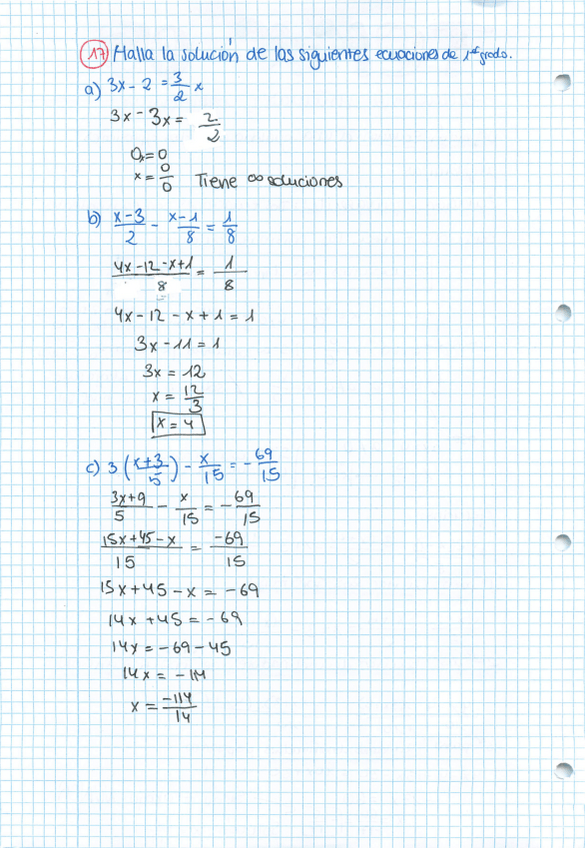 17 Halla la solución de las siguientes ecuaciones de 1er grado.
a) 3x - 2 = 3/2 x
3x - 3x = 2/2
0x = 0
x = 0/0 Tiene ∞ soluciones
b) x-3/2 - x-1/8 = 1/8
4x-12-x+1/8 = 1/8
4x-12-x+1 = 1
3x-11 = 1
3x = 12
x = 12/3
x = 4
c) 3 (x+3/5) - x/15 = -69/15
3x+9/5 - x/15 = -69/15
15x+45-x/15 = -69/15
15x+45-x = -69
14x+45 = -69
14x = -69-45
14x = -114
x = -114/14